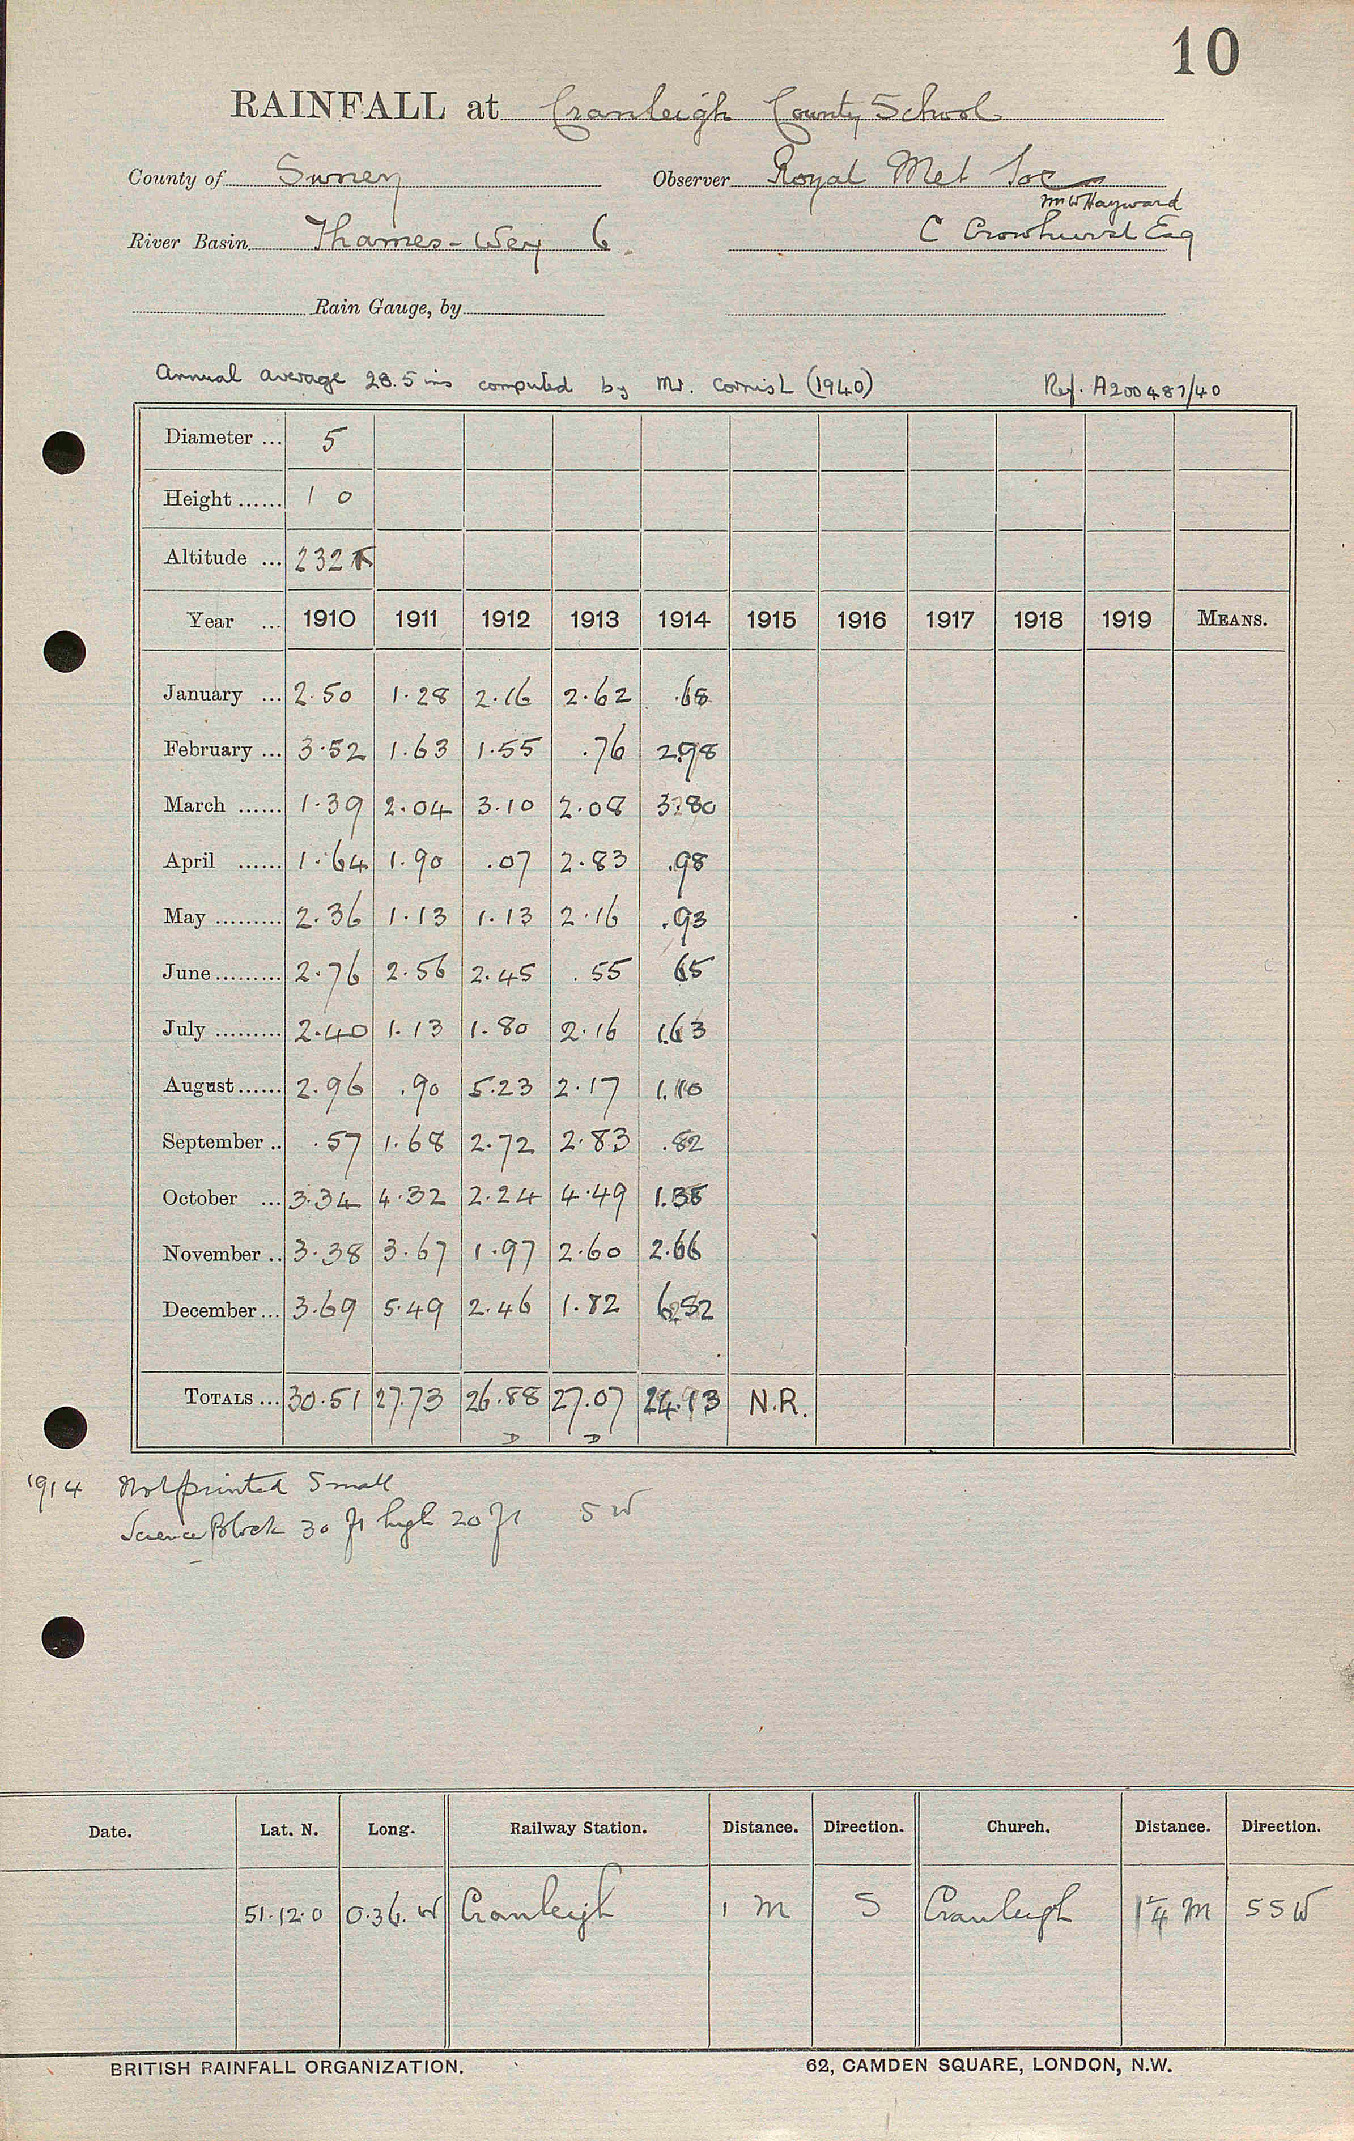 10
RAINFALL at Cranleigh County School
County of Surrey Observer Royal Met Soc
Mr W Hayward
River Basin Thames-Wey 6 C Crowhurst Esq
Rain Gauge, by
Annual average 28.5 ins computed by Mr. Cornish (1940) Ref. A200487/40
Diameter ... 5
Height ...... 1 0
Altitude ... 232 ft
Year ... 1910 1911 1912 1913 1914 1915 1916 1917 1918 1919 MEANS.
January ... 2.50 1.28 2.16 2.62 .68
February ... 3.52 1.63 1.55 .76 2.98
March ...... 1.39 2.04 3.10 2.08 3.80
April ...... 1.64 1.90 .07 2.83 .98
May ......... 2.36 1.13 1.13 2.16 .93
June ......... 2.76 2.56 2.45 .55 65
July ......... 2.40 1.13 1.80 2.16 1.63
August ...... 2.96 .90 5.23 2.17 1.10
September .. .57 1.68 2.72 2.83 .82
October ... 3.34 4.32 2.24 4.49 1.38
November .. 3.38 3.67 1.97 2.60 2.66
December ... 3.69 5.49 2.46 1.82 6.52
TOTALS ... 30.51 27.73 26.88 27.07 24.13 N.R.
D D
1914 Not printed Small
Science Block 30 ft high 20 ft SW
Date. Lat. N. Long. Railway Station. Distance. Direction. Church. Distance. Direction.
51.12.0 0.36. W Cranleigh 1 m S Cranleigh 1 1/4 m SSW
BRITISH RAINFALL ORGANIZATION. 62, CAMDEN SQUARE, LONDON, N.W.